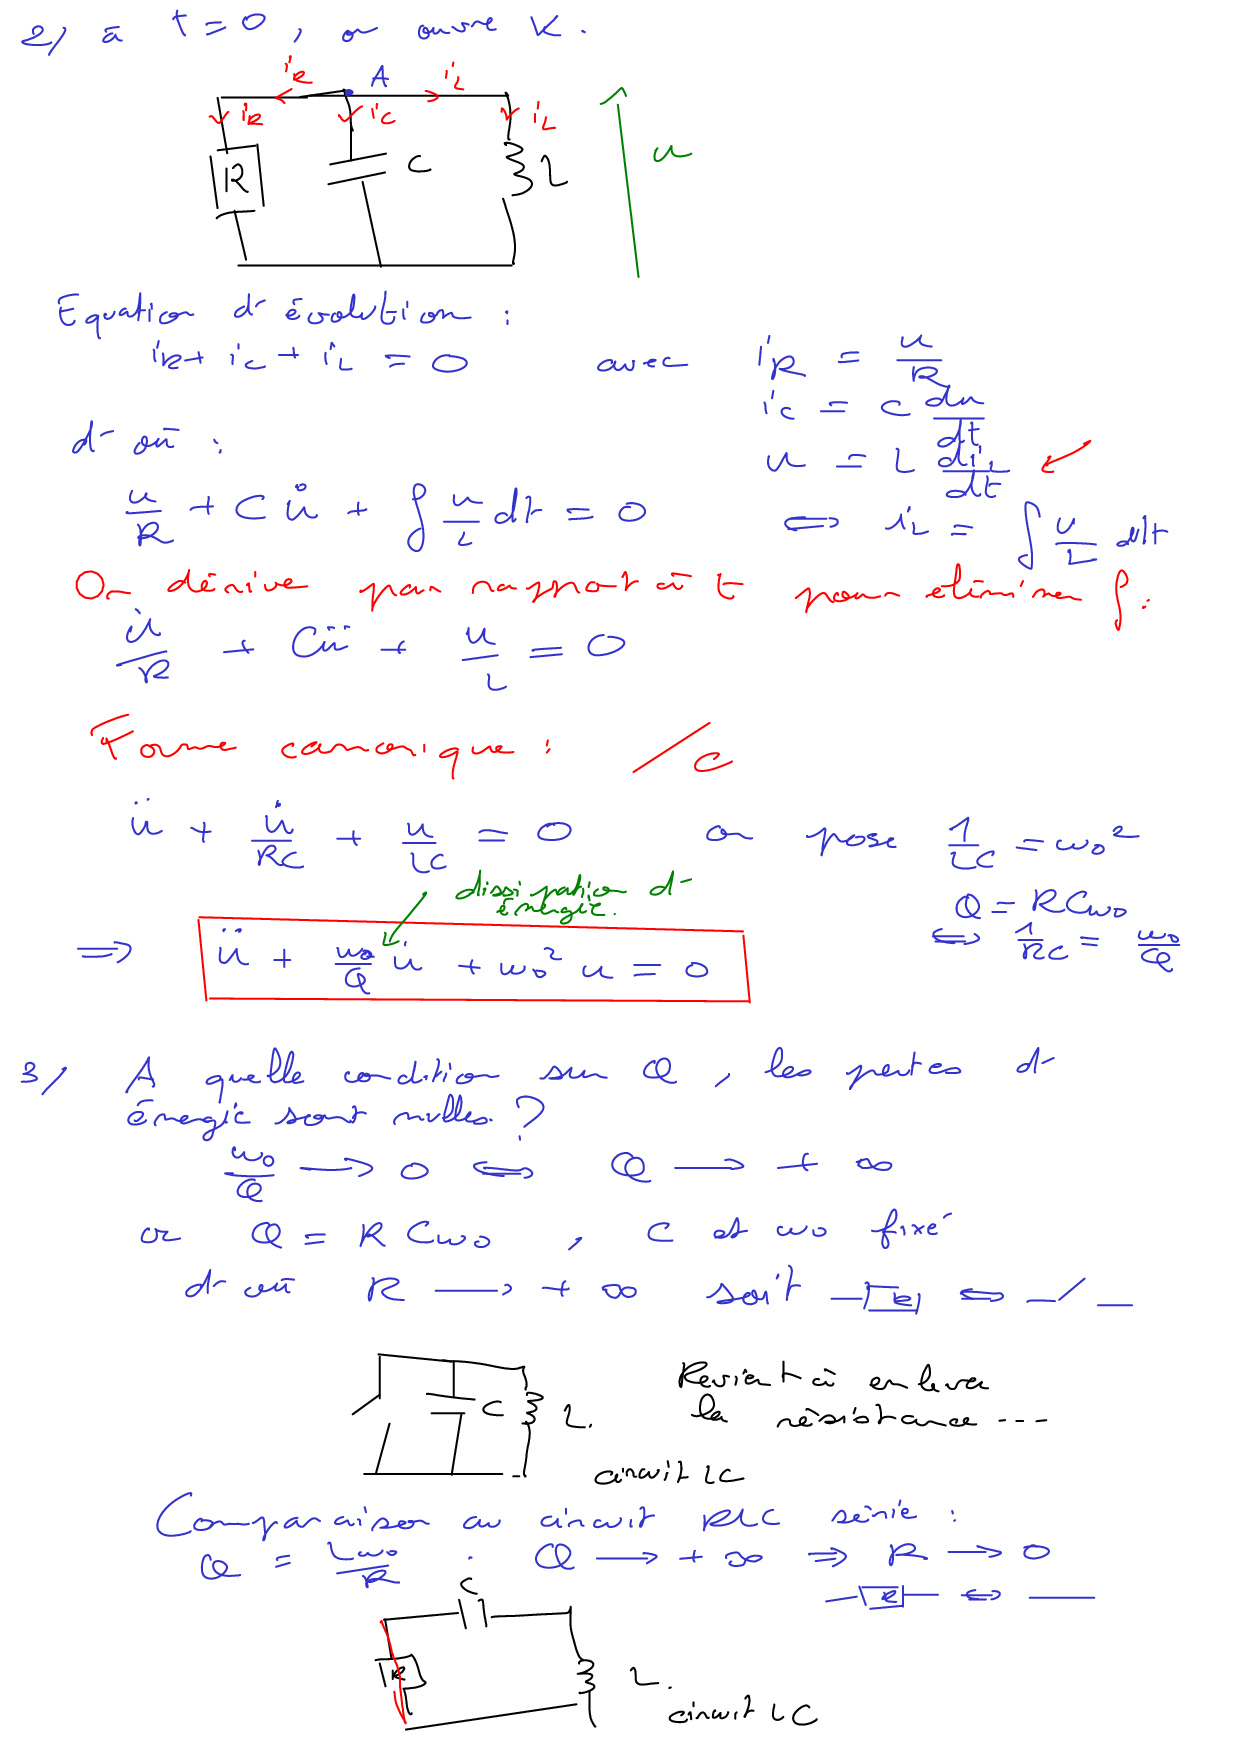 2/ à t = 0, on ouvre K.
i_R A i_L
i_R i_C i_L
R C L u
Equation d' évolution :
i_R + i_C + i_L = 0 avec i_R = u/R
i_C = C du/dt
d' où : u = L di_L/dt
u/R + C u̇ + ∫ u/L dt = 0 ⇔ i_L = ∫ u/L dt
On dérive par rapport à t pour éliminer ∫ :
u̇/R + Cü + u/L = 0
Forme canonique : /C
ü + u̇/RC + u/LC = 0 on pose 1/LC = ω₀²
dissipation d'
énergie. Q = RCω₀
⇔ 1/RC = ω₀/Q
⇒ ü + ω₀/Q u̇ + ω₀² u = 0
3/ A quelle condition sur Q, les pertes d'
énergie sont nulles ?
ω₀/Q → 0 ⇔ Q → + ∞
or Q = R Cω₀ , C et ω₀ fixé
d' où R → + ∞ soit R ⇔ _/_
Revient à enlever
C L. la résistance ---
circuit LC
Comparaison au circuit RLC série :
Q = Lω₀/R . Q → + ∞ ⇒ R → 0
R ⇔ —
C
R L.
circuit LC